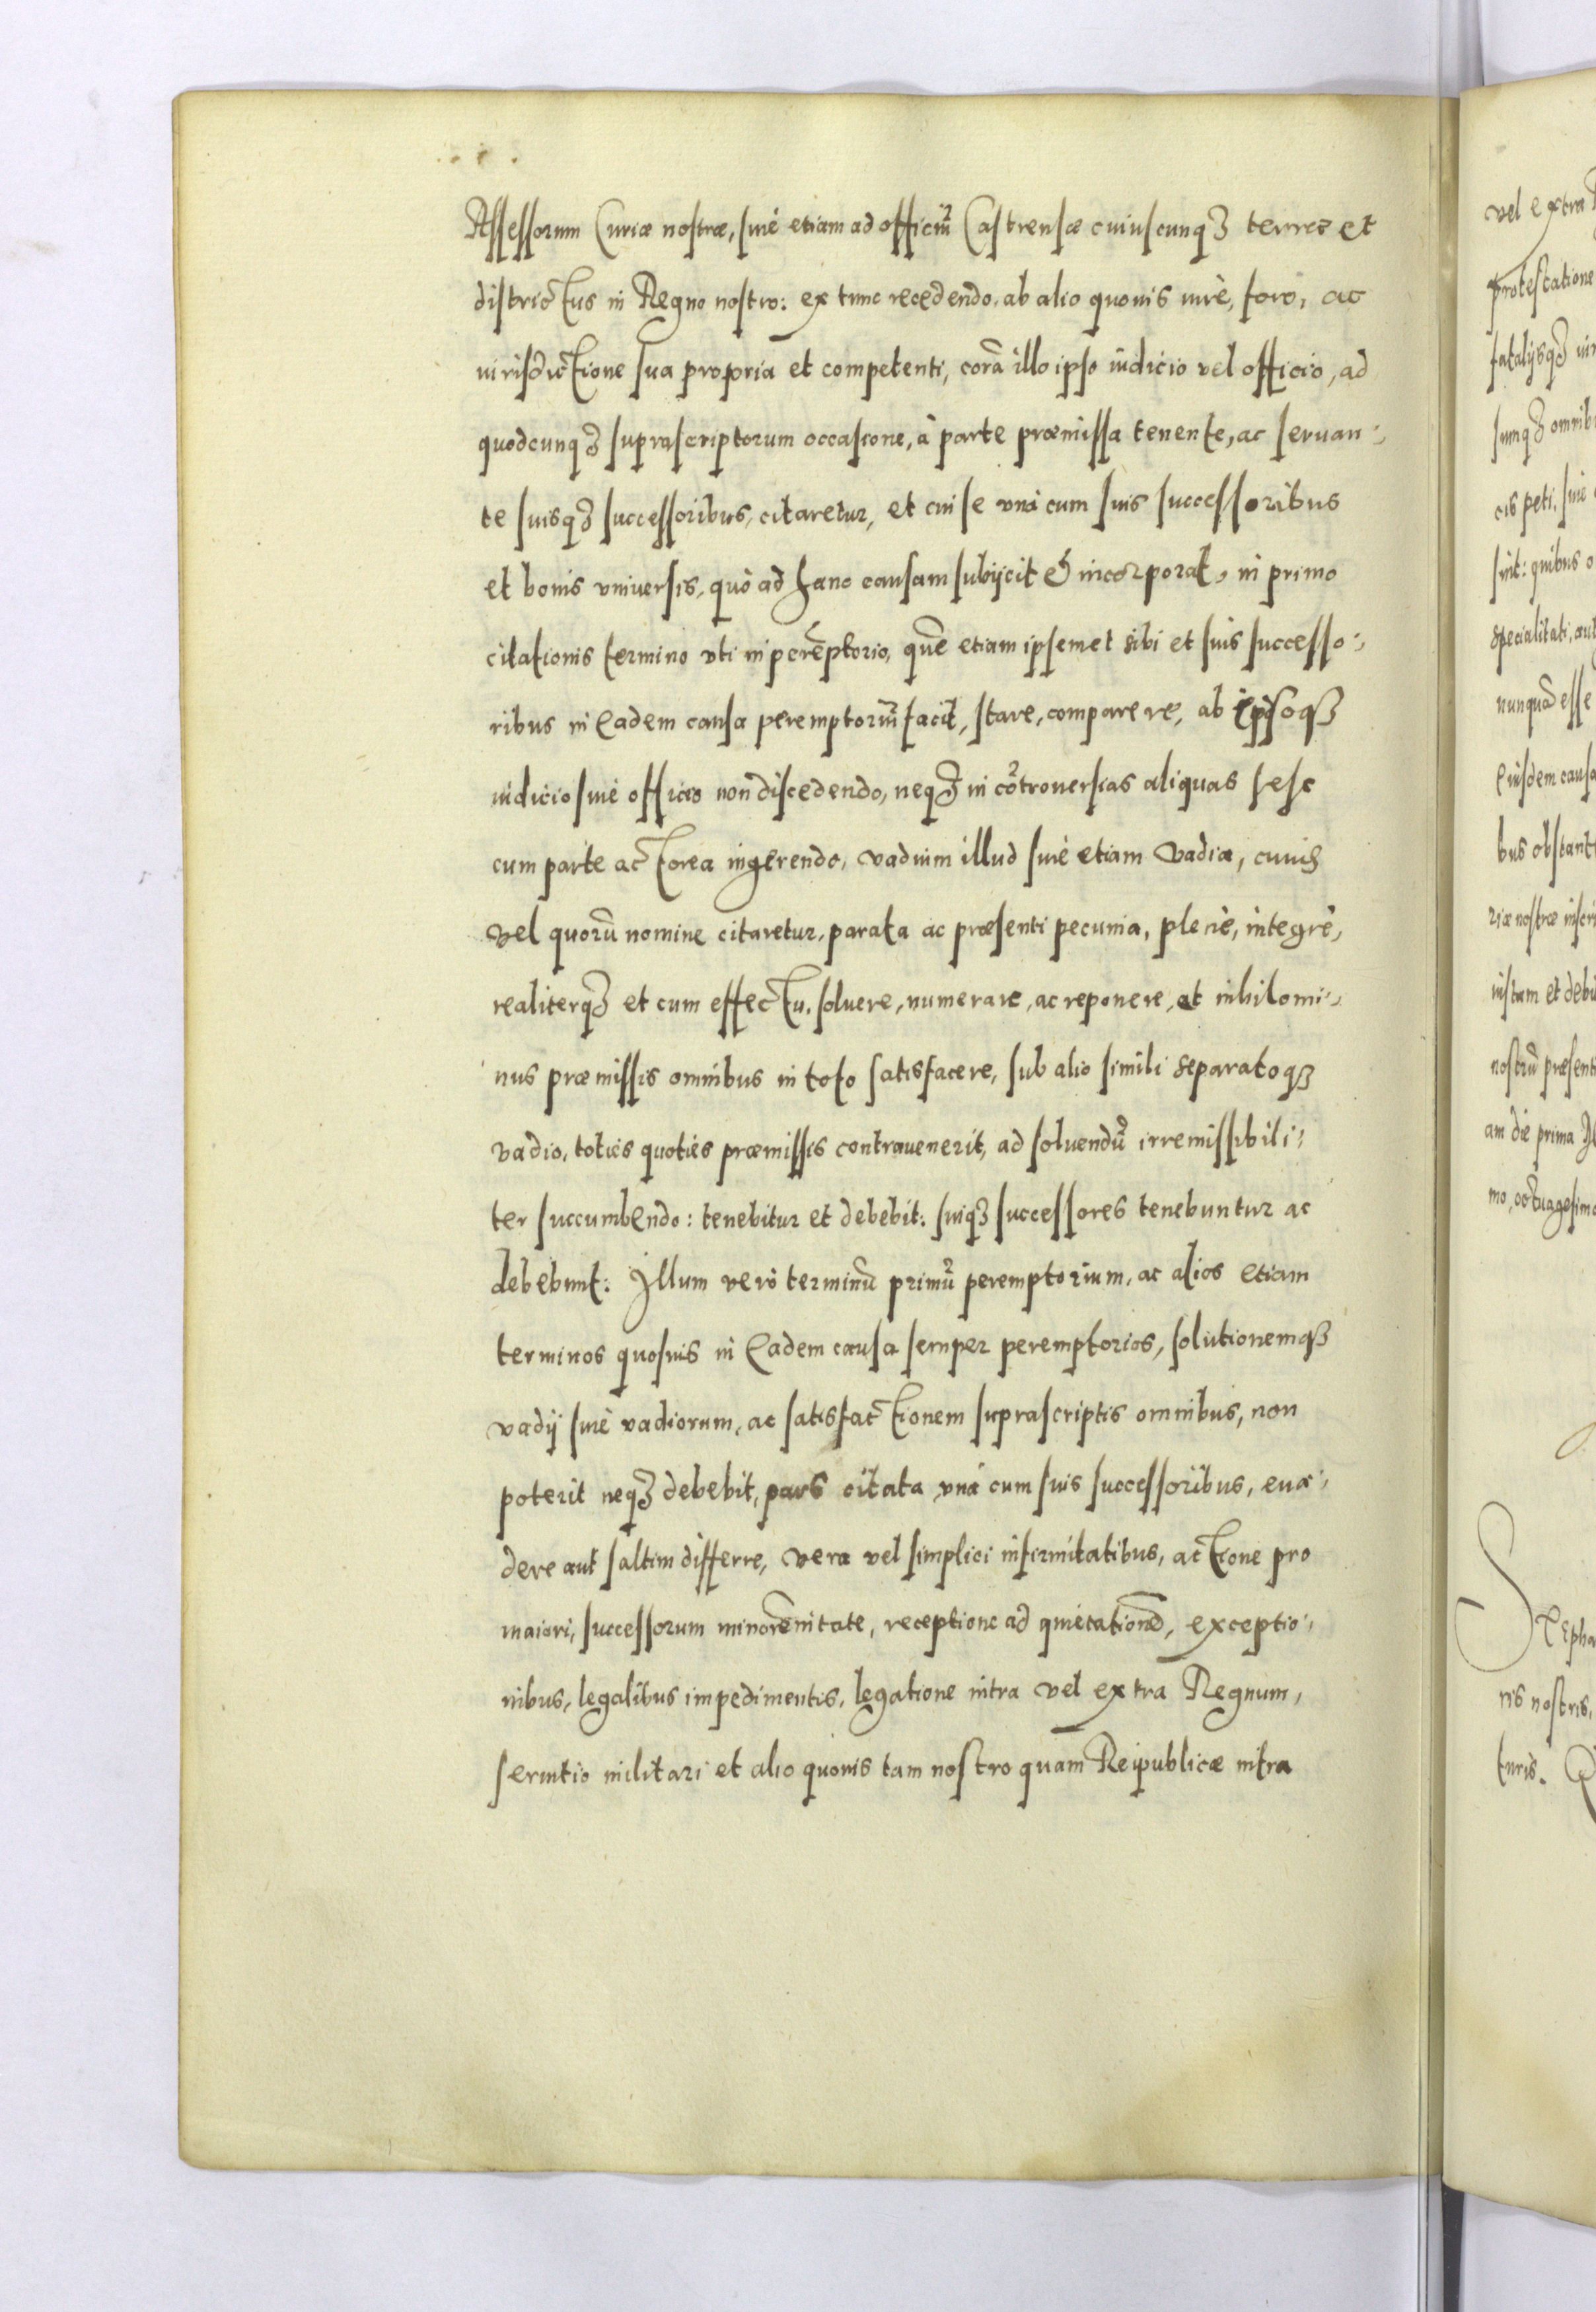 Assessorum Curiæ nostræ, siue etiam ad officiũ Castrense cuiuscunqꝫ terræ et
districtus in Regno nostro: ex tunc recedendo, ab alio quouis iure, foro, ac
iurisdictione sua propria et competenti, corã illo ipso iudicio vel officio, ad
quodcunqꝫ suprascriptorum occasione, à parte præmissa tenente, ac seruan-
te suisqꝫ successoribus, citaretur, et cui se vnà cum suis successoribus
et bonis vniuersis, quò ad hanc causam subijcit & incorporat, in primo
citationis termino vti in perẽptorio, quẽ etiam ipsemet sibi et suis successo-
ribus in eadem causa peremptoriũ facit, stare, comparere, ab ipsoqꝫ
iudicio siue officio non discedendo, neqꝫ in cõtrouersias aliquas sese
cum parte actorea ingerendo, vadium illud siue etiam vadia, cuius
vel quorũ nomine citaretur, parata ac præsenti pecunia, plenè, integrè,
realiterqꝫ et cum effectu, soluere, numerare, ac reponere, at nihilomi-
nus præmissis omnibus in toto satisfacere, sub alio simili separatoqꝫ
vadio, toties quoties præmissis contrauenerit, ad soluendũ irremissibili-
ter succumbendo: tenebitur et debebit: suiqꝫ successores tenebuntur ac
debebunt: Illum verò terminũ primũ peremptorium, ac alios etiam
terminos quosuis in eadem causa semper peremptorios, solutionemqꝫ
vadij siue vadiorum, ac satisfactionem suprascriptis omnibus, non
poterit neqꝫ debebit, pars citata vnà cum suis successoribus, eua-
dere aut saltim differre, vera vel simplici infirmitatibus, actione pro
maiori, successorum minorẽnitate, receptione ad quietationẽ, exceptio-
nibus, legalibus impedimentis, legatione intra vel extra Regnum,
seruitio militari et alio quouis tam nostro quam Reipublicæ intra
vel extra
protestatione
fatalijsqꝫ
sumqꝫ omnib
cis peti, siue
sint: quibus o
specialitati, aut
nunquã esse
eiusdem causa
bus obstant
riæ nostræ inscri
iustam et debi
nostrũ præsent
am die prima
mo, octuagesimo
Stepha
ris nostris,
turis.